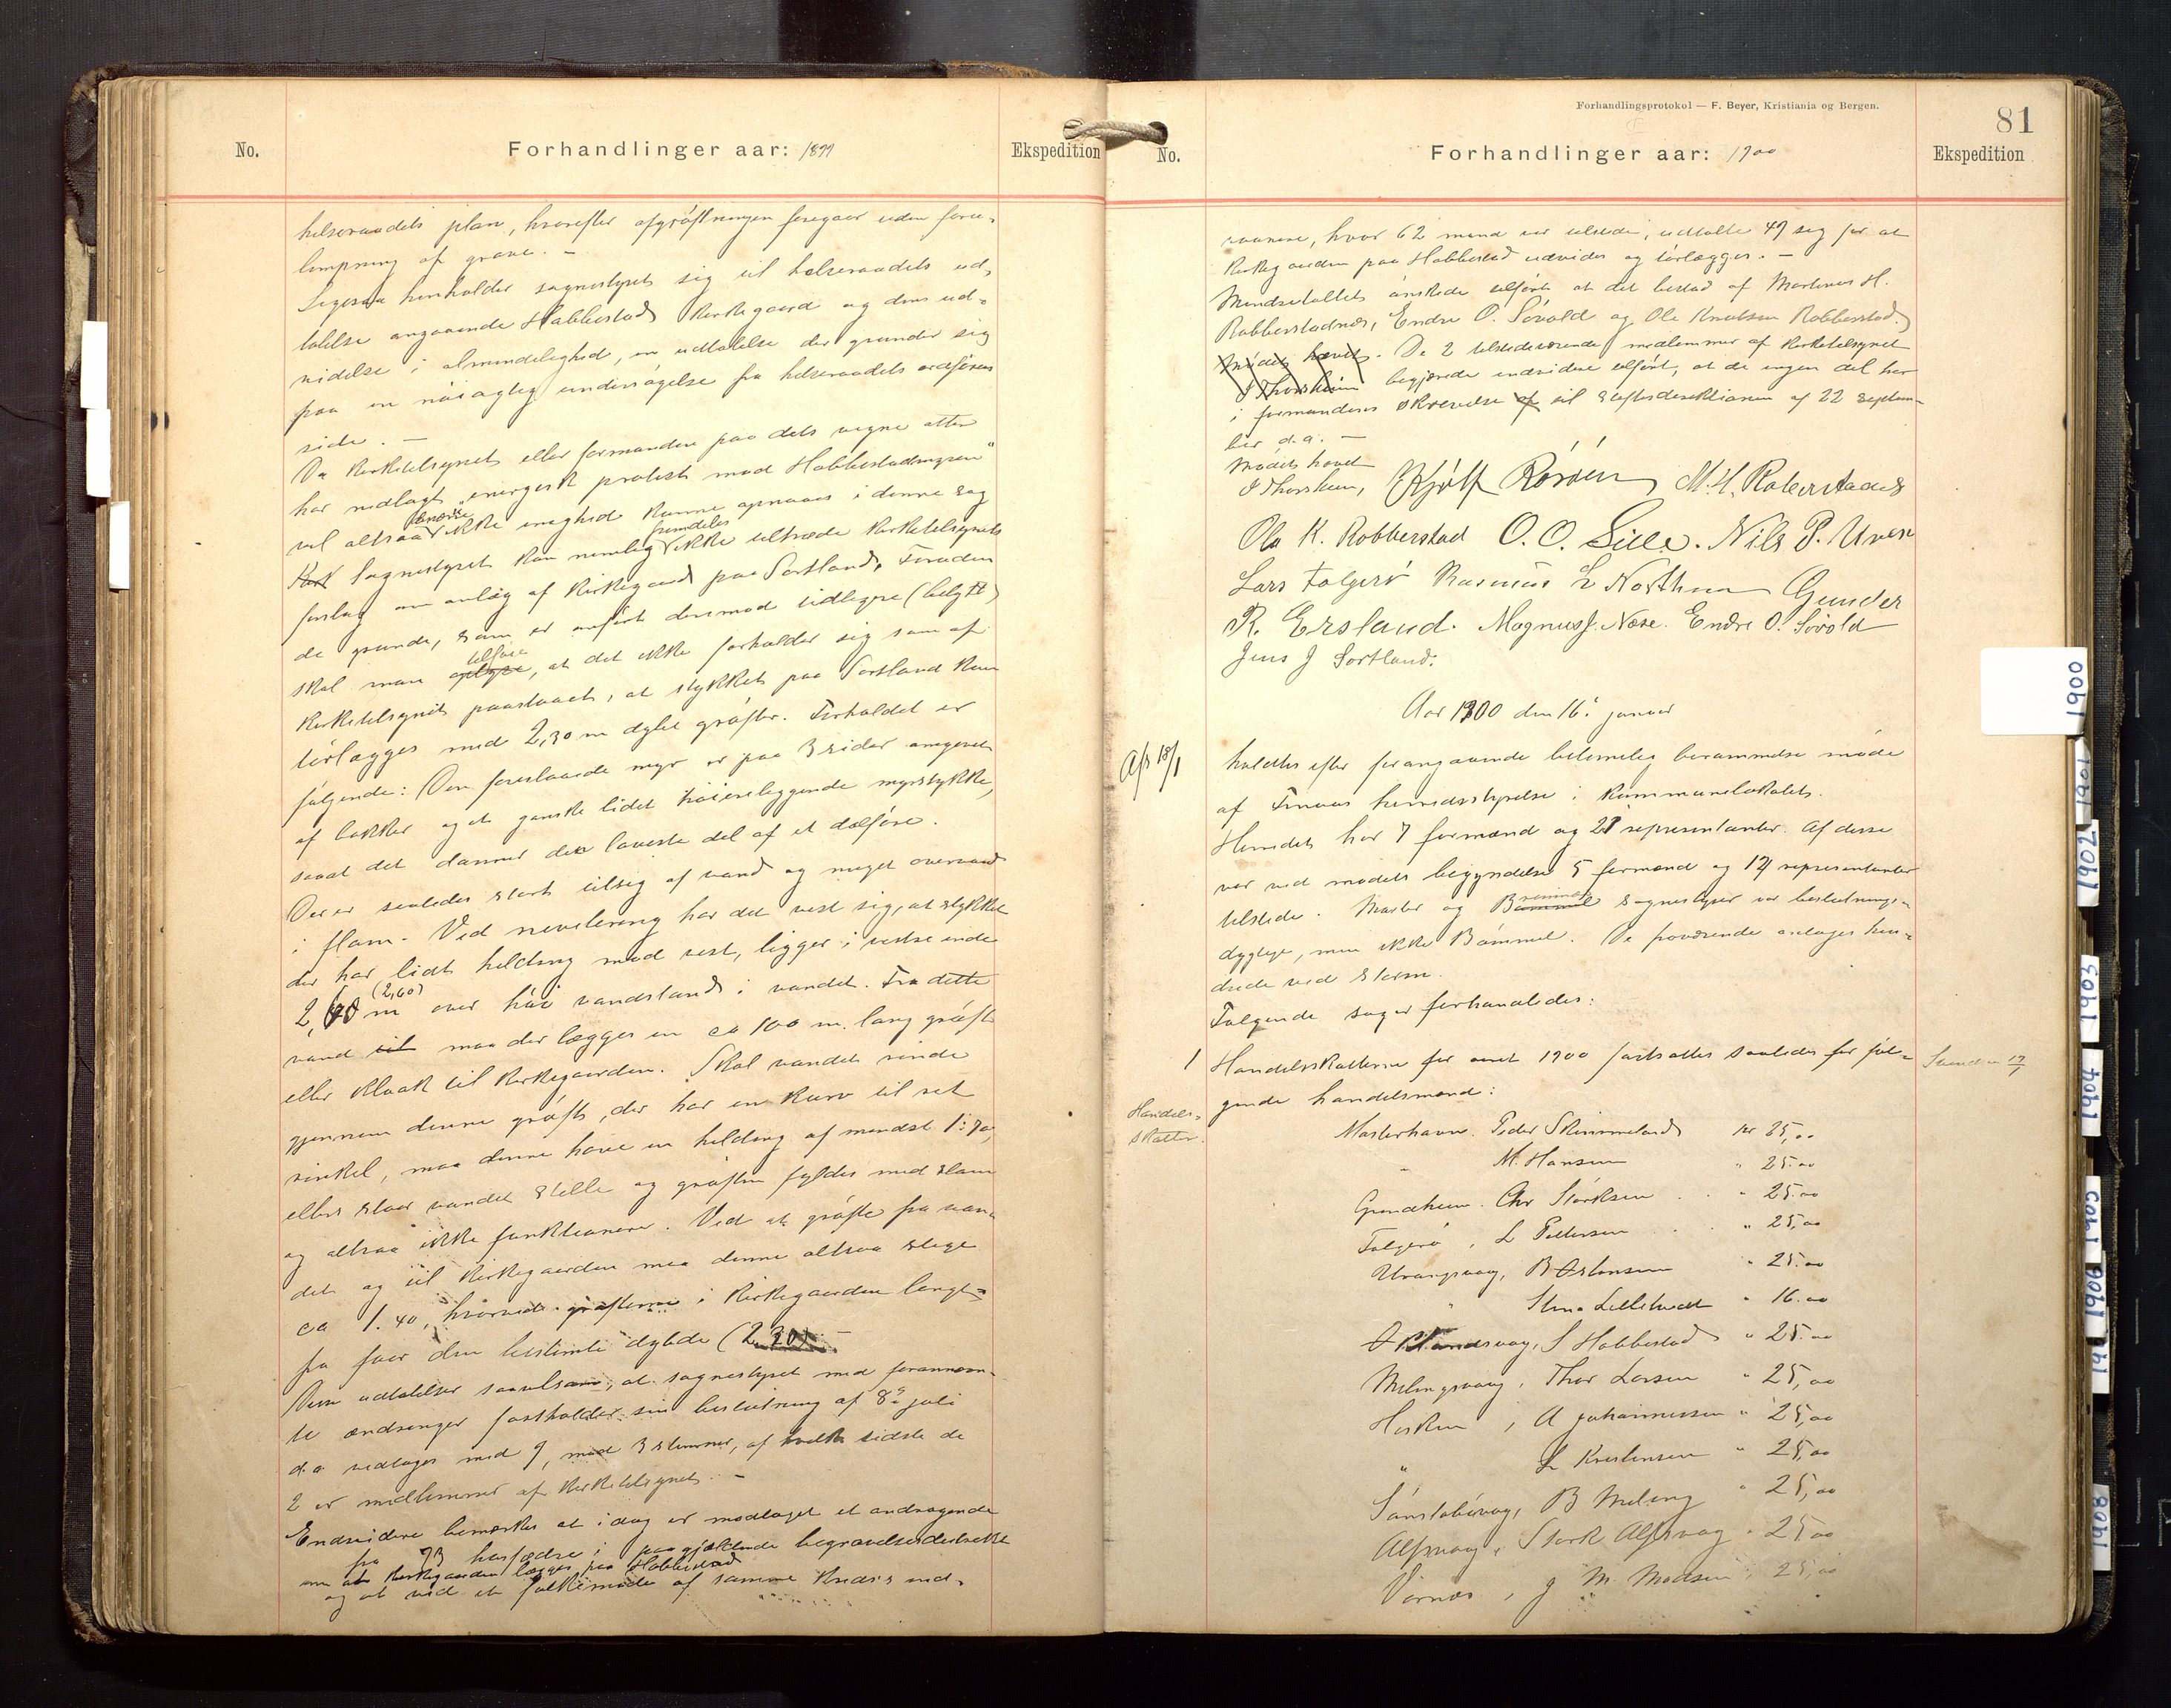 No.
Forhandlinger aar: 1899
Ekspedition
helseraadets plan, hvorefter afgrøftningen foregaar uden foru-
lempning af grave. –
Ligesaa henholder sognestyret sig til helseraadets ud-
talelse angaaende Habbestad kirkegaard og dens ud-
videlse i almindelighed, en udtalelse der grunder sig
paa en nøiagtig undersøgelse fra helseraadets ordførers
side. –
Da kirketilsynet eller formanden paa dets vegne atter
har nedlagt "energisk protest mod Habbestadmyren"
vil altsaa ikke enighed kunne opnaaes i denne sag
Sognestyret kan nemlig fremdeles ikke tiltræde kirketilsynets
forslag om anlæg af kirkegaard paa Sortland. Foruden
de grunde, som er anført derimod tidligere
skal man tilføie, at det ikke forholder sig som af
kirketilsynet paastaaet, at stykket paa Sortland kan
tørlægges med 2,30 m dybe grøfter. Forholdet er
følgende: Den foreslaaede myr er paa 3 sider omgivet
af bakker og et ganske lidet høiereliggende myrstykke,
saaat det danner den laveste del af et dalføre.
Der er saaledes stort tilsig af vand og meget overvand
i flom. Ved nivelering har det vist sig, at stykket
der har lidt helding mod vest, ligger i vestre ende
(2,60)
2,60 m over høi vandstand i vandet. Fra dette
vand maa der lægges en ca 100 m. lang grøft
eller kloak til kirkegaarden. Skal vandet rinde
gjennem denne grøft, der har en kurv til ret
vinkel, maa denne have en helding af mindst 1:70,
ellers staar vandet stille og grøften fyldes med slam
og altsaa ikke funktionere. Ved at grøfte fra van-
det og til kirkegaarden maa denne altsaa stige
ca 1.40, hvorved grøfterne i kirkegaarden langt-
fra faar den bestemte dybde (2.30). –
Disse udtalelser saavelsom, at sognestyret med forannævn-
te ændringer fastholder sin beslutning af 8de juli
d.a. vedtages med 9, mod 3 stemmer, af hvilke sidste de
2 er medlemmer af kirketilsynet. –
Endvidere bemærkes at idag er modtaget et andragende
fra 93 husfædre i paagjældende begravelsesdistrikt
om at kirkegaarden lægges paa Habbestad
og at ved et folkemøde af samme kreds's ind-
Forhandlingsprotokol — F. Beyer, Kristiania og Bergen.
81
No.
Forhandlinger aar: 1900
Ekspedition
vaanere, hvor 62 mænd var tilstede, udtalte 49 sig for at
kirkegaarden paa Habbestad udvides og tørlægges. –
Mindretallet ønskede tilført at det bestod af Martinus H.
Robberstadnes, Endre O. Søvold og Ole Knutsen Robberstad.
Mødet hævet. De 2 tilstedeværende medlemmer af kirketilsynet
I Thorsheim begjærede endvidere tilført, at de ingen del har
i formandens skrivelse af til stiftsdirektionen af 22 septem-
ber d.a. –
Mødet hævet
I Thorsheim, Kjølf Rørøen, M. H. Roberstadnes
Ola K. Robberstad O. O. Lille. Nils P. Urn
Lars Folgerø Rasmus L Northun Gunder
R. Ersland. Magnus J. Næse. Endre O. Søvold
Jens J Sortland.
Aar 1900 den 16. januar
Afs 18/1
holdtes efter forangaaende betimelig berammelse møde
af Finnaas herredsstyrelse i kommunelokalet.
Herredet har 7 formænd og 21 representanter. Af disse
var ved mødets begyndelse 5 formænd og 14 representanter
tilstede. Moster og Bremnes sognestyrer var beslutnings-
dygtige, men ikke Bømmel. De fraværende antages hin-
drede ved storm.
Følgende sager forhandledes:
1 Handelsskatterne for aaret 1900 fastsattes saaledes for føl-
gende handelsmænd:
Handels-
skatter.
Mosterhavn. Peder Skimmeland kr 25,00
" M. Hansen " 25.00
Grindheim. Chr Størksen " 25.00
Folgerø, L Pettersen " 25,00
Urangsvaag, B Østensen " 25.00
" Lillehvedt " 16.00
Øklandsvag, S Habbestad " 25.00
Melingsvaag, Thor Larsen " 25,00
Hisken, A Johannessen " 25,00
" L Kristensen " 25,00
B Meling " 25,00
Alfsvaag, Stork Alfsvag " 25.00
Vornes, J M. Madsen " 25,00
1900
1901
1902
1903
1904
1905
1906
1908